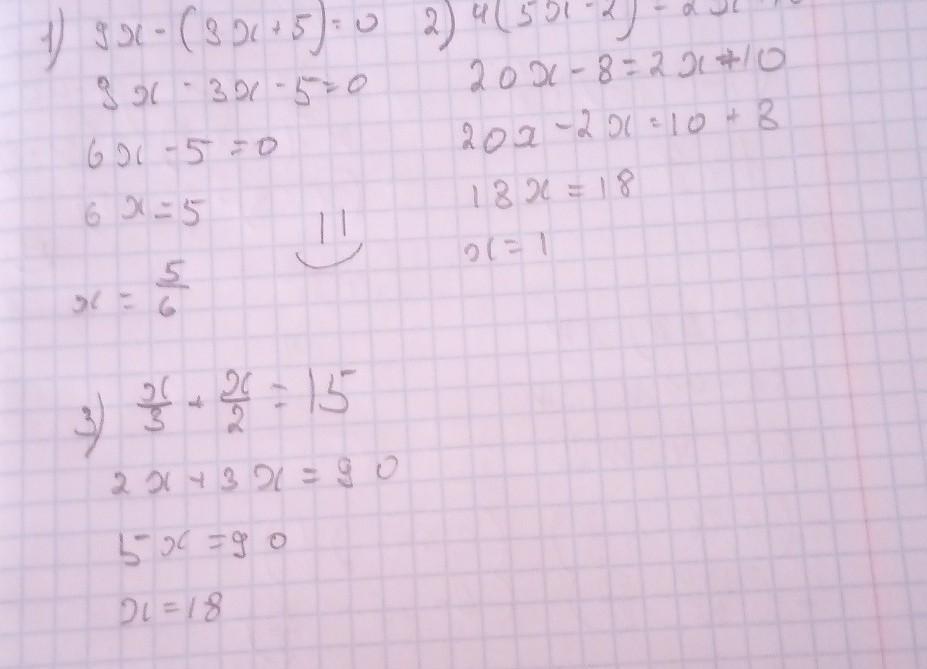 1) 9x - (3x + 5) = 0
9x - 3x - 5 = 0
6x - 5 = 0
6x = 5
x = 5/6
2) 4(5x - 2) = 2x
20x - 8 = 2x + 10
20x - 2x = 10 + 8
18x = 18
x = 1
3) x/3 + x/2 = 15
2x + 3x = 90
5x = 90
x = 18